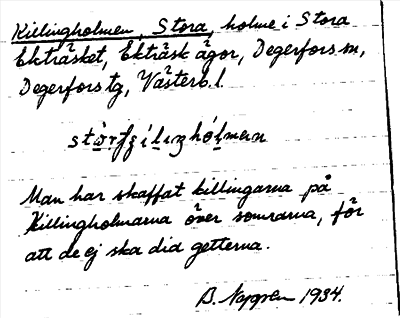 Killingholmen, Stora, holme i Stora
Ekträsket, Ekträsk ägor, Degerfors sn,
Degerfors tg, Västerb. l.
Man har skaffat killingarna på
Killingholmarna över somrarna, för
att de ej ska did getterna.
B. 1934.